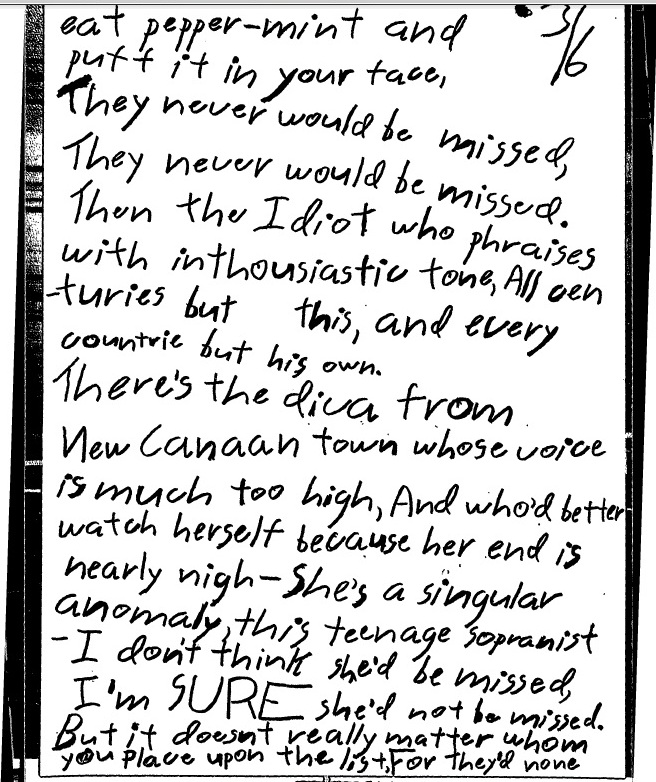 eat pepper-mint and
3/6
puff it in your face,
They never would be missed,
They never would be missed.
Then the Idiot who phraises
with inthousiastic tone, All cen
-turies but this, and every
countrie but his own.
There's the diva from
New Canaan town whose voice
is much too high, And who'd better
watch herself because her end is
nearly nigh-She's a singular
anomaly, this teenage sopranist
-I don't think she'd be missed,
I'm SURE she'd not be missed.
But it doesnt really matter whom
you place upon the list, For they'd none